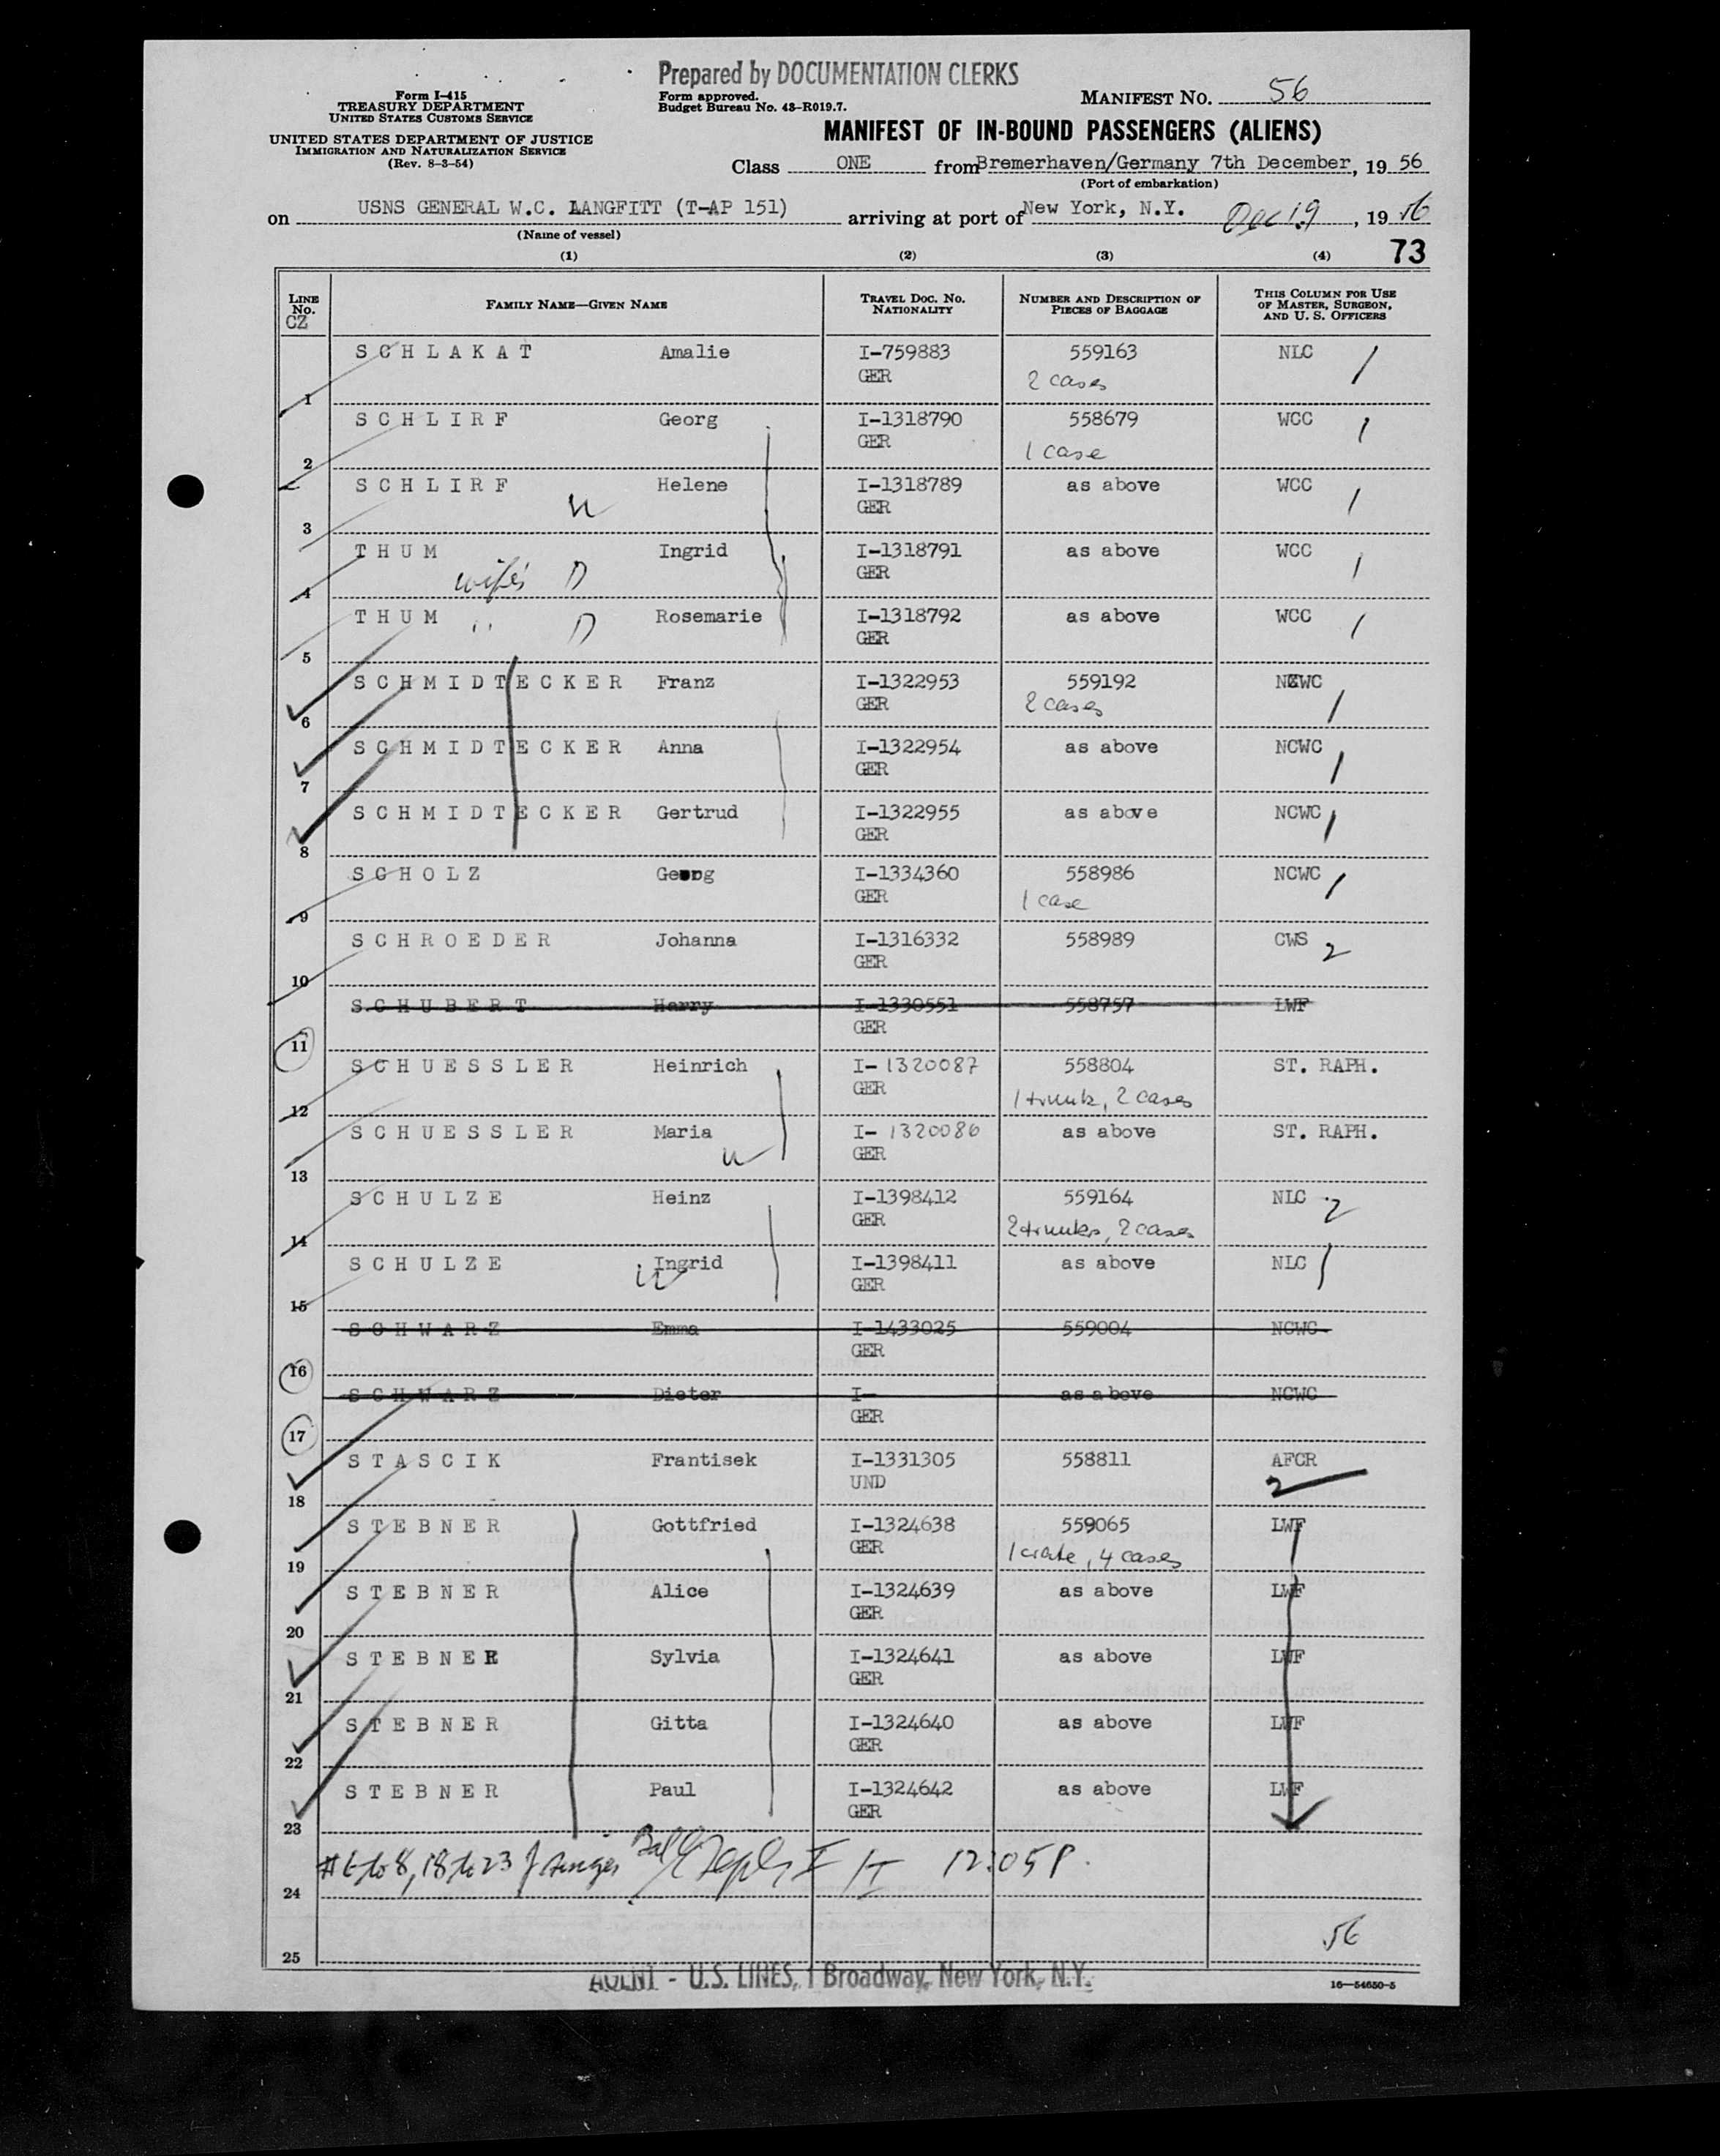 Prepared by DOCUMENTATION CLERKS
Form I-415
TREASURY DEPARTMENT
UNITED STATES CUSTOMS SERVICE
UNITED STATES DEPARTMENT OF JUSTICE
IMMIGRATION AND NATURALIZATION SERVICE
(Rev. 8-3-54)
Form approved.
Budget Bureau No. 43-R019.7.
MANIFEST NO. 56
MANIFEST OF IN-BOUND PASSENGERS (ALIENS)
Class ONE from Bremerhaven/Germany 7th December, 19 56
(Port of embarkation)
on USNS GENERAL W.C. LANGFITT (T-AP 151) arriving at port of New York, N.Y. Dec 19, 19 56
(Name of vessel)
(1) (2) (3) (4) 73
LINE NO. FAMILY NAME—GIVEN NAME TRAVEL DOC. NO. NATIONALITY NUMBER AND DESCRIPTION OF PIECES OF BAGGAGE THIS COLUMN FOR USE OF MASTER, SURGEON, AND U. S. OFFICERS
CZ
SCHLAKAT Amalie I-759883 559163 NLC /
1 GER 2 cases
SCHLIRF Georg I-1318790 558679 WCC /
2 GER 1 case
SCHLIRF Helene I-1318789 as above WCC /
3 W GER
THUM Ingrid I-1318791 as above WCC /
4 wife's D GER
THUM Rosemarie I-1318792 as above WCC /
5 " D GER
SCHMIDTECKER Franz I-1322953 559192 NCWC /
6 GER 2 cases
SCHMIDTECKER Anna I-1322954 as above NCWC /
7 GER
SCHMIDTECKER Gertrud I-1322955 as above NCWC /
8 GER
SCHOLZ Georg I-1334360 558986 NCWC /
9 GER 1 case
SCHROEDER Johanna I-1316332 558989 CWS 2
10 GER
SCHUBERT Harry I-1330551 558757 LWF
11 GER
SCHUESSLER Heinrich I-1320087 558804 ST. RAPH.
12 GER 1 trunk, 2 cases
SCHUESSLER Maria I-1320086 as above ST. RAPH.
13 W GER
SCHULZE Heinz I-1398412 559164 NLC 2
14 GER 2 trunks, 2 cases
SCHULZE Ingrid I-1398411 as above NLC /
15 W GER
SCHWARZ Emma I-1433025 559004 NCWC
16 GER
SCHWARZ Dieter I- as above NCWC
17 GER
STASCIK Frantisek I-1331305 558811 AFCR
18 UND 2
STEBNER Gottfried I-1324638 559065 LWF
19 GER 1 crate, 4 cases
STEBNER Alice I-1324639 as above LWF
20 GER
STEBNER Sylvia I-1324641 as above LWF
21 GER
STEBNER Gitta I-1324640 as above LWF
22 GER
STEBNER Paul I-1324642 as above LWF
23 GER
#6 to 8, 18 to 23 12:05 P.
24
56
25
AGENT - U.S. LINES, 1 Broadway, New York, N.Y.
16—54650-5